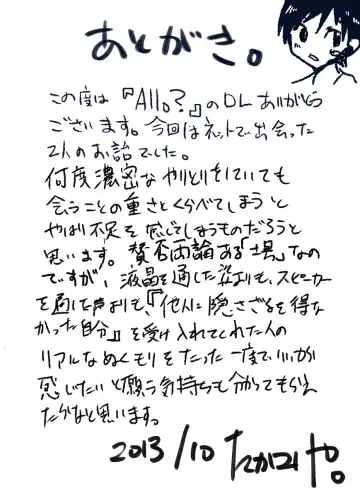 あとがき。
この度は『Allo?』のDLありがとう
ございます。今回はネットで出会った
2人のお話でした。
何度濃密なやりとりをしていても
会うことの重さとくらべてしまうと
やはり不足を感じてしまうものだろうと
思います。賛否両論ある「土異」なの
ですが、液晶を通した姿よりも、スピーカー
を通した声よりも、『他人に隠さざるを得な
かった自分』を受け入れてくれた人の
リアルなぬくもりをたった一度でいいから
感じたいと願う気持ちも分かってもらえ
たらなと思います。
2013/10